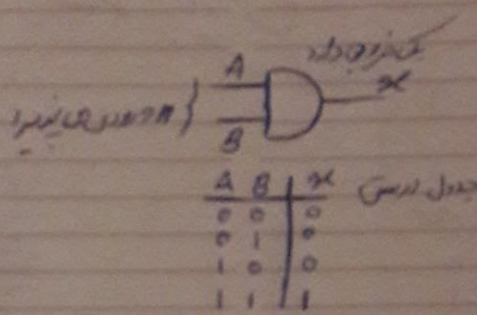 یک خروجی دارد
A
x
n ورودی می پذیرد
B
A B x جدول درستی
0 0 0
0 1 0
1 0 0
1 1 1